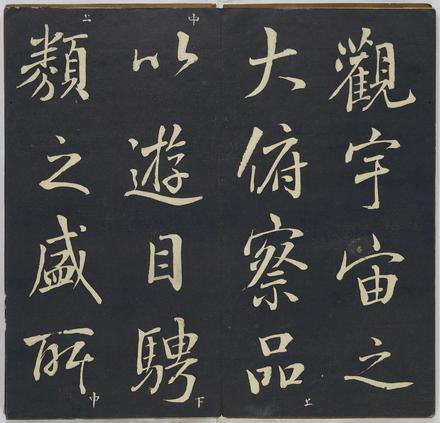 觀宇宙之
大俯察品
上
中
以遊目騁
下
上
類之盛所
中